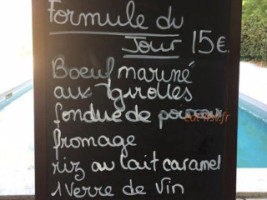 Formule du
Jour 15€.
Boeuf mariné
aux girolles
fondue de poireau
fromage
riz au lait caramel
1 verre de vin